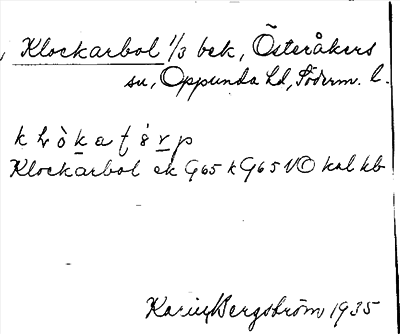 Klockarbol 1/3 bek, Österåkers
sn, Oppunda hd, Söderm. l.
Klockarbol ek G65 k G65 VO kal kb
Karin Bergström 1935